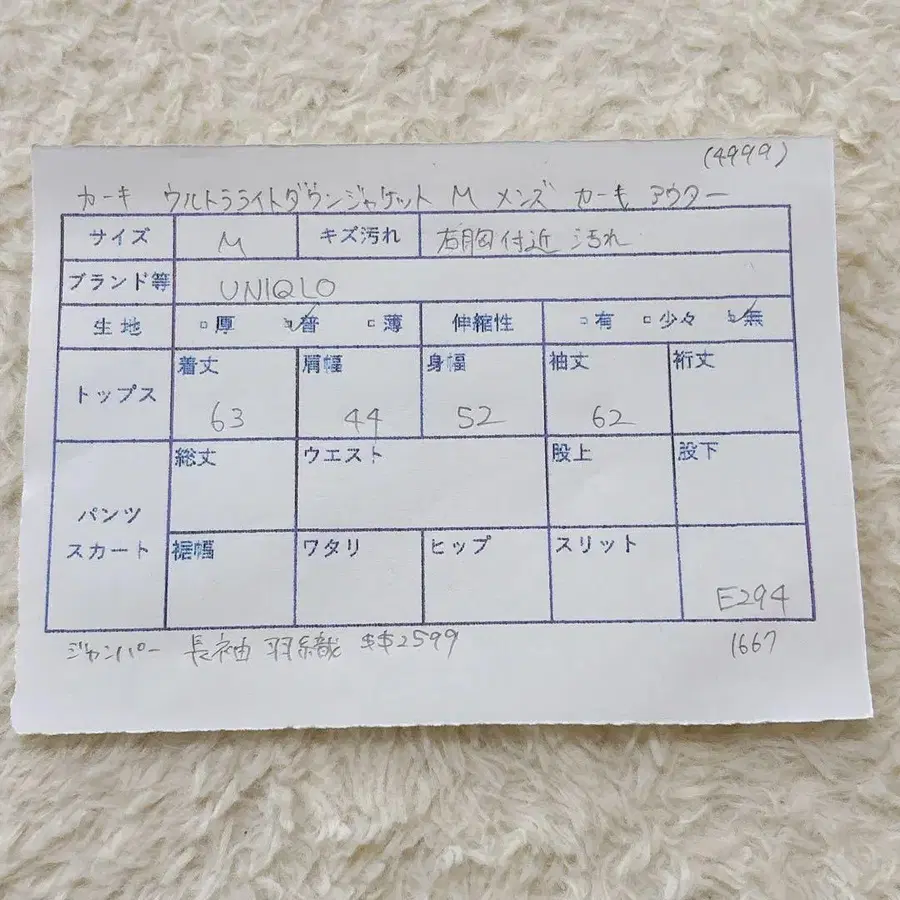 (4999)
カーキ ウルトラライトダウンジャケット M メンズ カーキ アウター
サイズ M キズ汚れ 右胸付近 汚れ
ブランド等 UNIQLO
生地 □厚 ☑普 □薄 伸縮性 □有 □少々 ☑無
トップス 着丈 63 肩幅 44 身幅 52 袖丈 62 裄丈
パンツ スカート 総丈 ウエスト 股上 股下
裾幅 ワタリ ヒップ スリット E294
ジャンパー 長袖 羽織 $$2599 1667